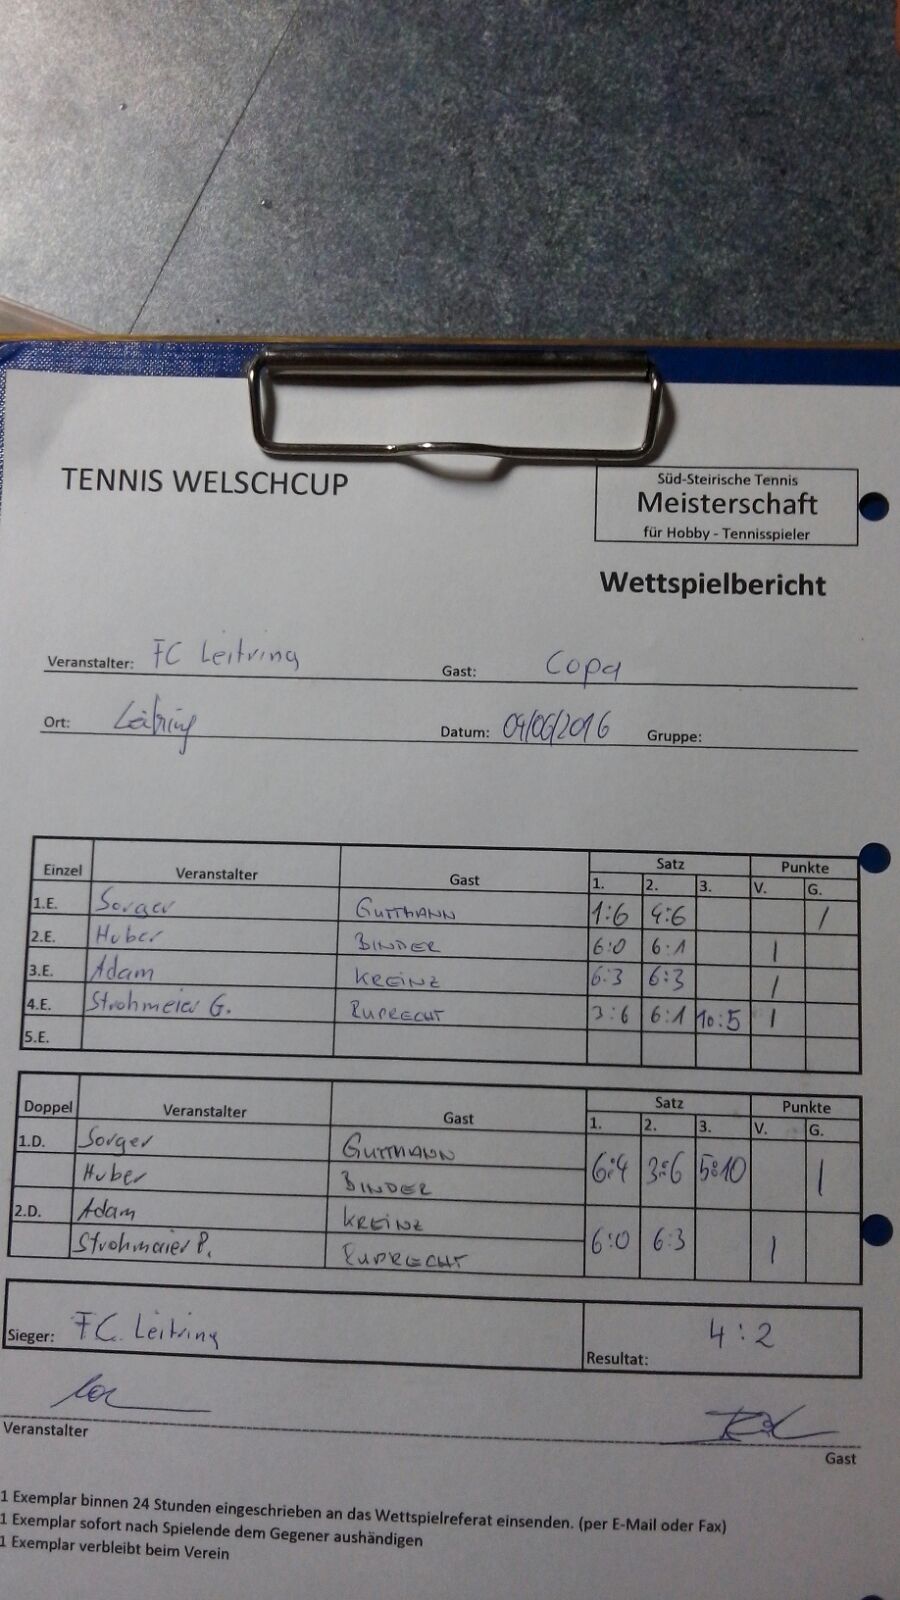 TENNIS WELSCHCUP
Süd-Steirische Tennis
Meisterschaft
für Hobby - Tennisspieler
Wettspielbericht
Veranstalter: FC Leitring Gast: Copa
Ort: Leitring Datum: 04/06/2016 Gruppe:
Einzel Veranstalter Gast Satz Punkte
1. 2. 3. V. G.
1.E. Sorger GUTTMANN 1:6 4:6 1
2.E. Huber BINDER 6:0 6:1 1
3.E. Adam KREINZ 6:3 6:3 1
4.E. Strohmeier G. RUPRECHT 3:6 6:1 10:5 1
5.E.
Doppel Veranstalter Gast Satz Punkte
1. 2. 3. V. G.
1.D. Sorger GUTTMANN
Huber BINDER 6:4 3:6 5:10 1
2.D. Adam KREINZ
Strohmaier P. RUPRECHT 6:0 6:3 1
Sieger: FC. Leitring Resultat: 4:2
Veranstalter Gast
1 Exemplar binnen 24 Stunden eingeschrieben an das Wettspielreferat einsenden. (per E-Mail oder Fax)
1 Exemplar sofort nach Spielende dem Gegener aushändigen
1 Exemplar verbleibt beim Verein